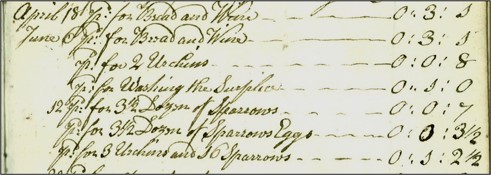 April 18 pd. for Bread and Wine - - 0 : 3 : 1
June 6 pd. for Bread and Wine - - - 0 : 3 : 1
pd. for 2 Urchins - - - - 0 : 0 : 8
pd. for Washing the Surplice - - - 0 : 1 : 0
12 pd. for 3½ Dozen of Sparrows - - - 0 : 0 : 7
pd. for 3½ Dozen of Sparrows Eggs - - - 0 : 0 : 3½
pd. for 3 Urchins and 16 Sparrows - - - 0 : 1 : 2½